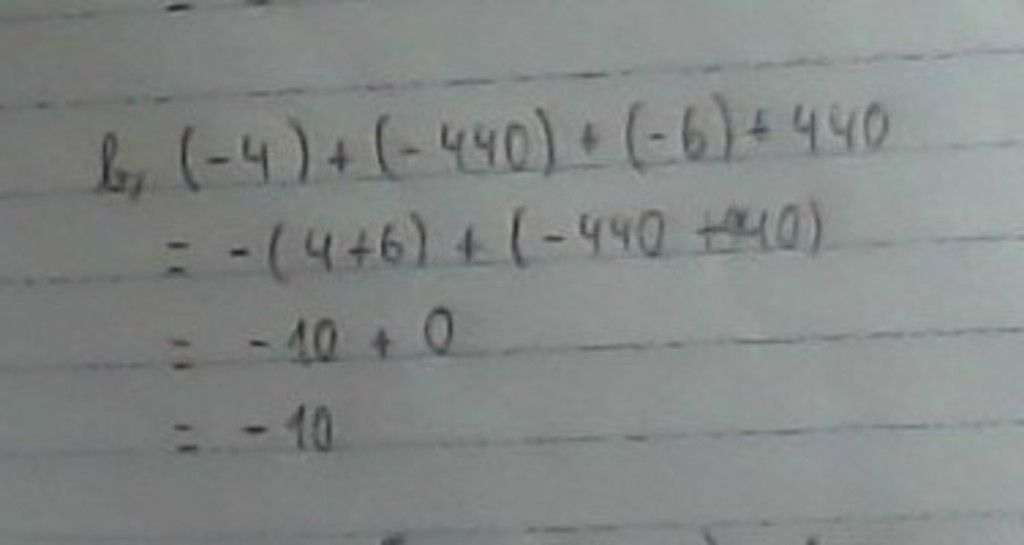 b, (-4) + (-440) + (-6) + 440
= -(4+6) + (-440 + 440)
= -10 + 0
= -10